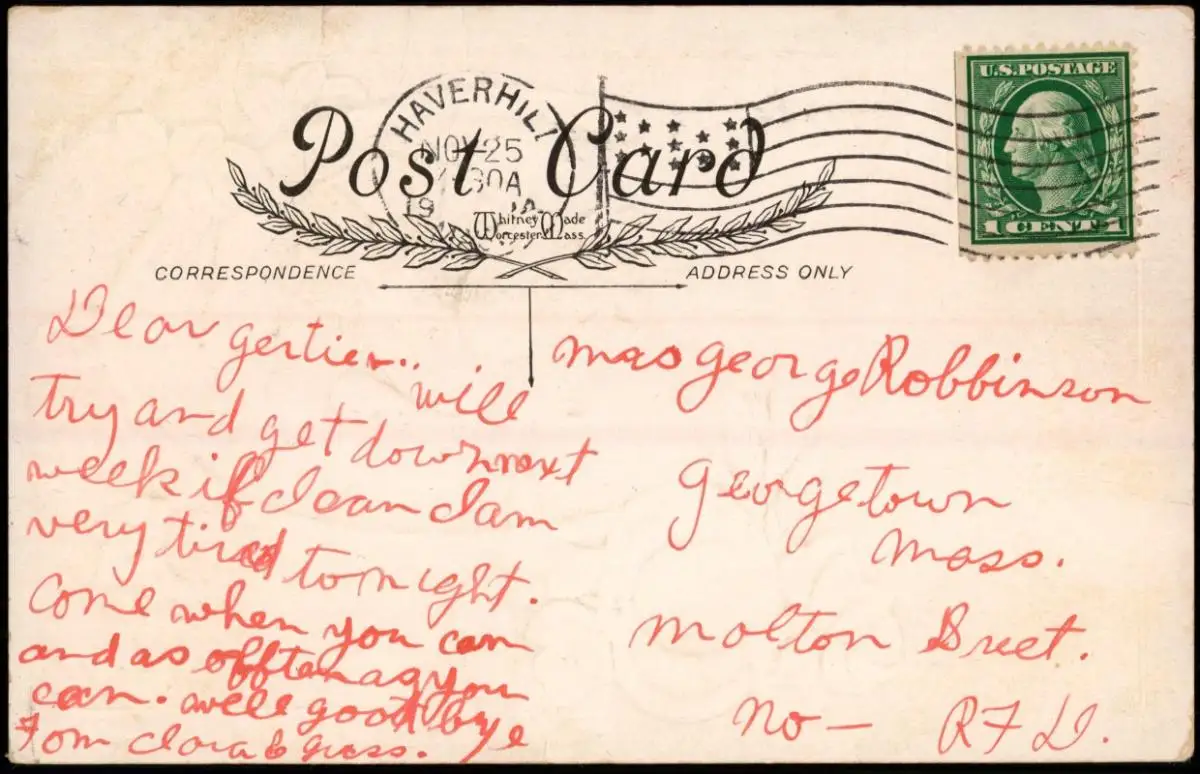 U.S.POSTAGE
1 CENT 1
HAVERHILL
NOV 25
30A
19
Post Card
Whitney Made
Worcester Mass.
CORRESPONDENCE
ADDRESS ONLY
Dear gertie.. will
try and get down next
week if I can I am
very tired tonight.
Come when you can
and as offten as you
can. well good bye
from Clara
Mrs George Robbinson
Georgetown
Mass.
Molton Street.
No — R F D.